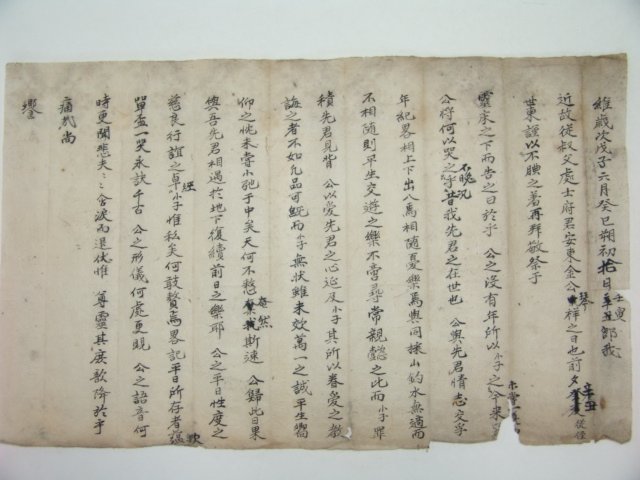 維歲次戊子六月癸巳朔初拾日壬寅
近故從叔父處士府君安東金公祥之日也前夕辛丑從侄
世東謹以不腆之羞再拜敬祭于
靈床之下而告之曰於乎 公之沒有年所以小子之今來
公將何以哭之乎昔我先君之在世也 公與先君情志交孚
年紀畧相上下出入焉相隨憂樂焉與同採山釣水無適而
不相隨則平生交遊之樂不啻尋常親懿之比而小子罪
積先君見背 公以愛先君之心延及小子其所以眷愛之教
誨之者不如凡品可貺而小子無狀雖未效萬一之誠平生嚮
仰之忱未嘗小弛于中矣天何不憖奄然斯速 公歸此日果
與吾先君相遇於地下復續前日之樂耶 公之平日性度之
慈良行誼之卓小子惟私矣何敢贅焉畧記平日所存者
單盃一哭永訣千古 公之形儀何處更覩 公之語音何
時更聞悲夫悲夫含淚而退伏惟 尊靈其庶歆降於乎
痛哉尚
饗